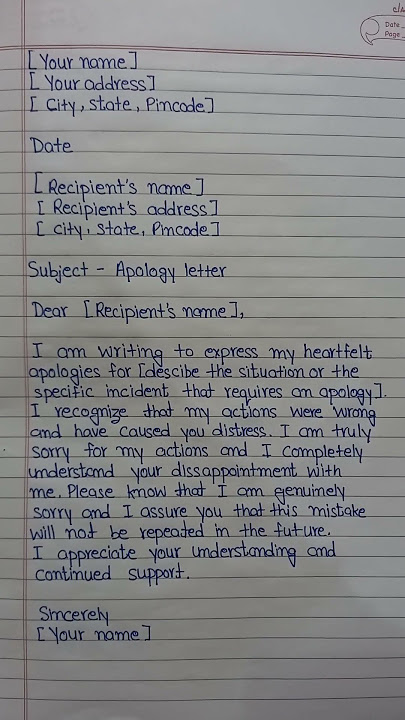 Date
Page
[Your name]
[Your address]
[City, state, Pincode]
Date
[Recipient's name]
[Recipient's address]
[City, State, Pincode]
Subject - Apology letter
Dear [Recipient's name],
I am writing to express my heartfelt
apologies for [descibe the situation or the
specific incident that requires an apology].
I recognize that my actions were wrong
and have caused you distress. I am truly
sorry for my actions and I completely
understand your dissappointment with
me. Please know that I am genuinely
sorry and I assure you that this mistake
will not be repeated in the future.
I appreciate your understanding and
continued support.
Sincerely
[Your name]